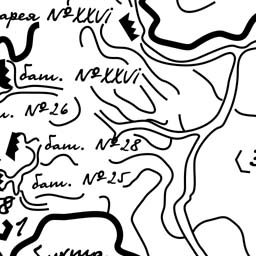 арея № XXVI
бат. № XXVI
т. № 26
бат. № 28
бат. № 25
8
1